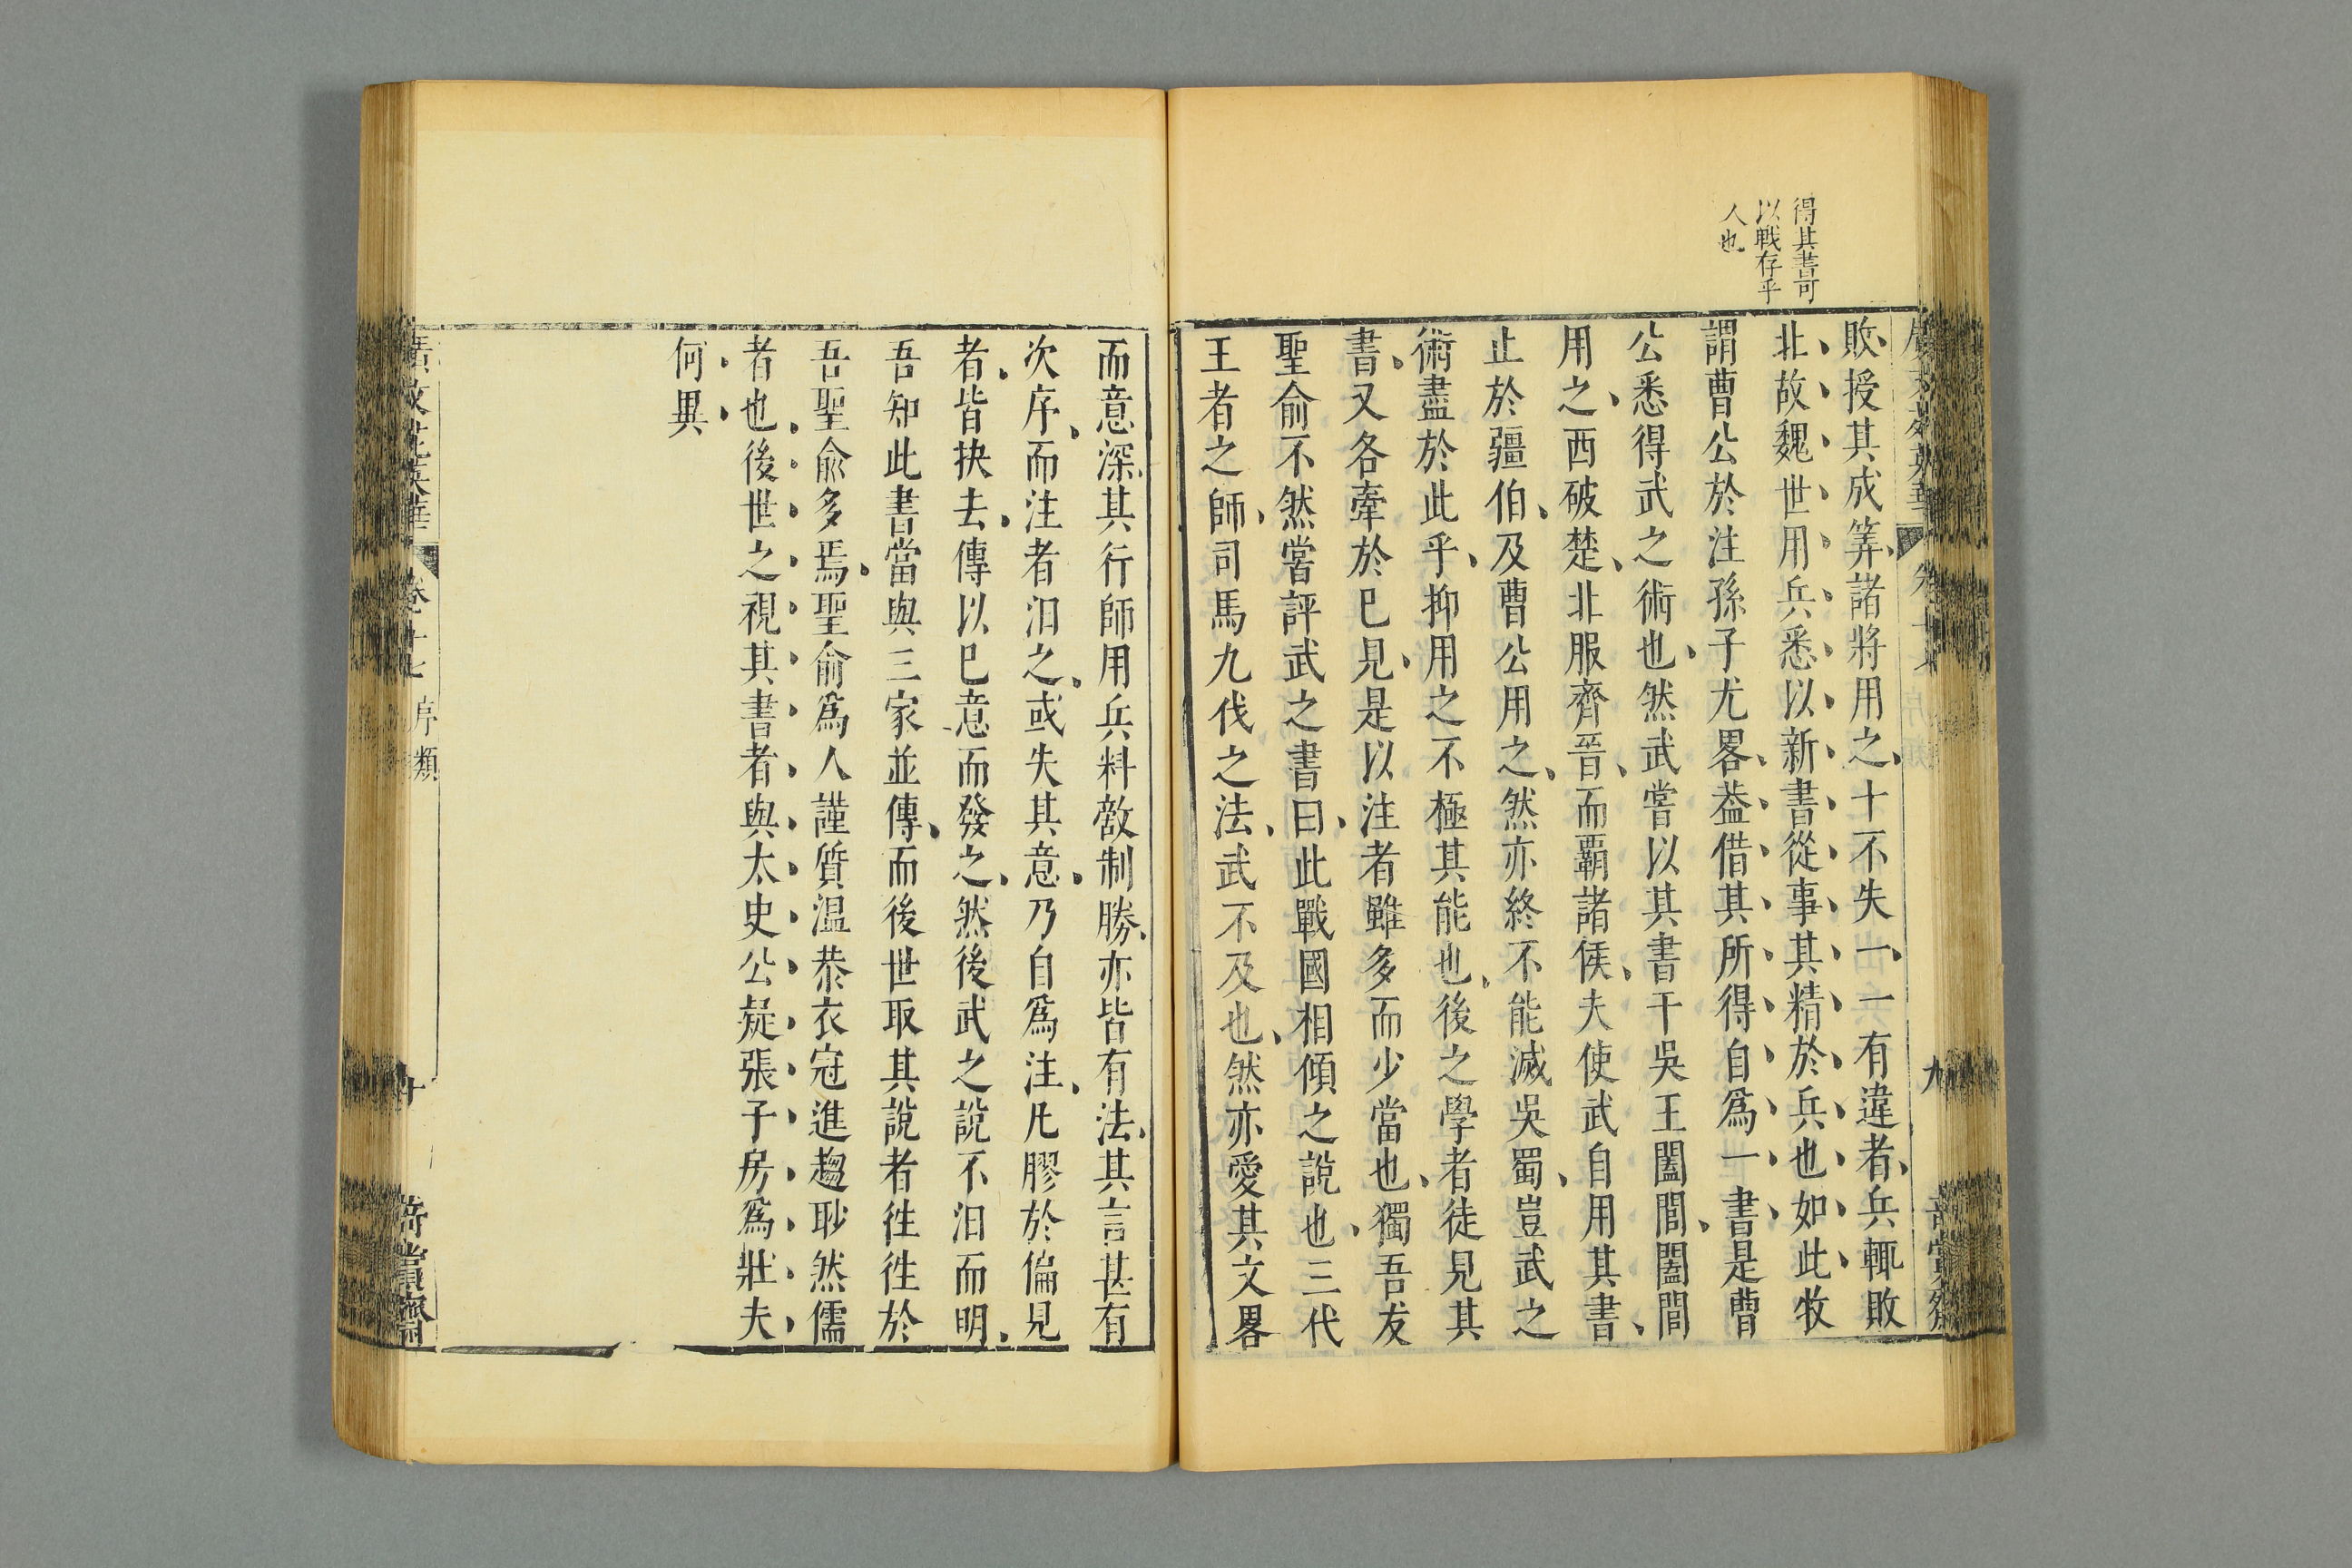 得其書可
以戰存乎
人也
敗授其成筭諸將用之十不失一一有違者兵輒敗
北故魏世用兵悉以新書從事其精於兵也如此牧
謂曹公於注孫子尤畧葢借其所得自爲一書是曹
公悉得武之術也然武嘗以其書干吳王闔閭闔閭
用之西破楚北服齊晉而覇諸侯夫使武自用其書
止於疆伯及曹公用之然亦終不能滅吳蜀豈武之
術盡於此乎抑用之不極其能也後之學者徒見其
書又各牽於巳見是以注者雖多而少當也獨吾友
聖俞不然嘗評武之書曰此戰國相傾之說也三代
王者之師司馬九伐之法武不及也然亦愛其文畧
而意深其行師用兵料敵制勝亦皆有法其言甚有
次序而注者汨之或失其意乃自爲注凡膠於偏見
者皆抉去傳以巳意而發之然後武之說不汨而明
吾知此書當與三家並傳而後世取其說者徃徃於
吾聖俞多焉聖俞爲人謹質温恭衣冠進趨眇然儒
者也後世之視其書者與太史公疑張子房爲壯夫
何異
卷十七 序類 十